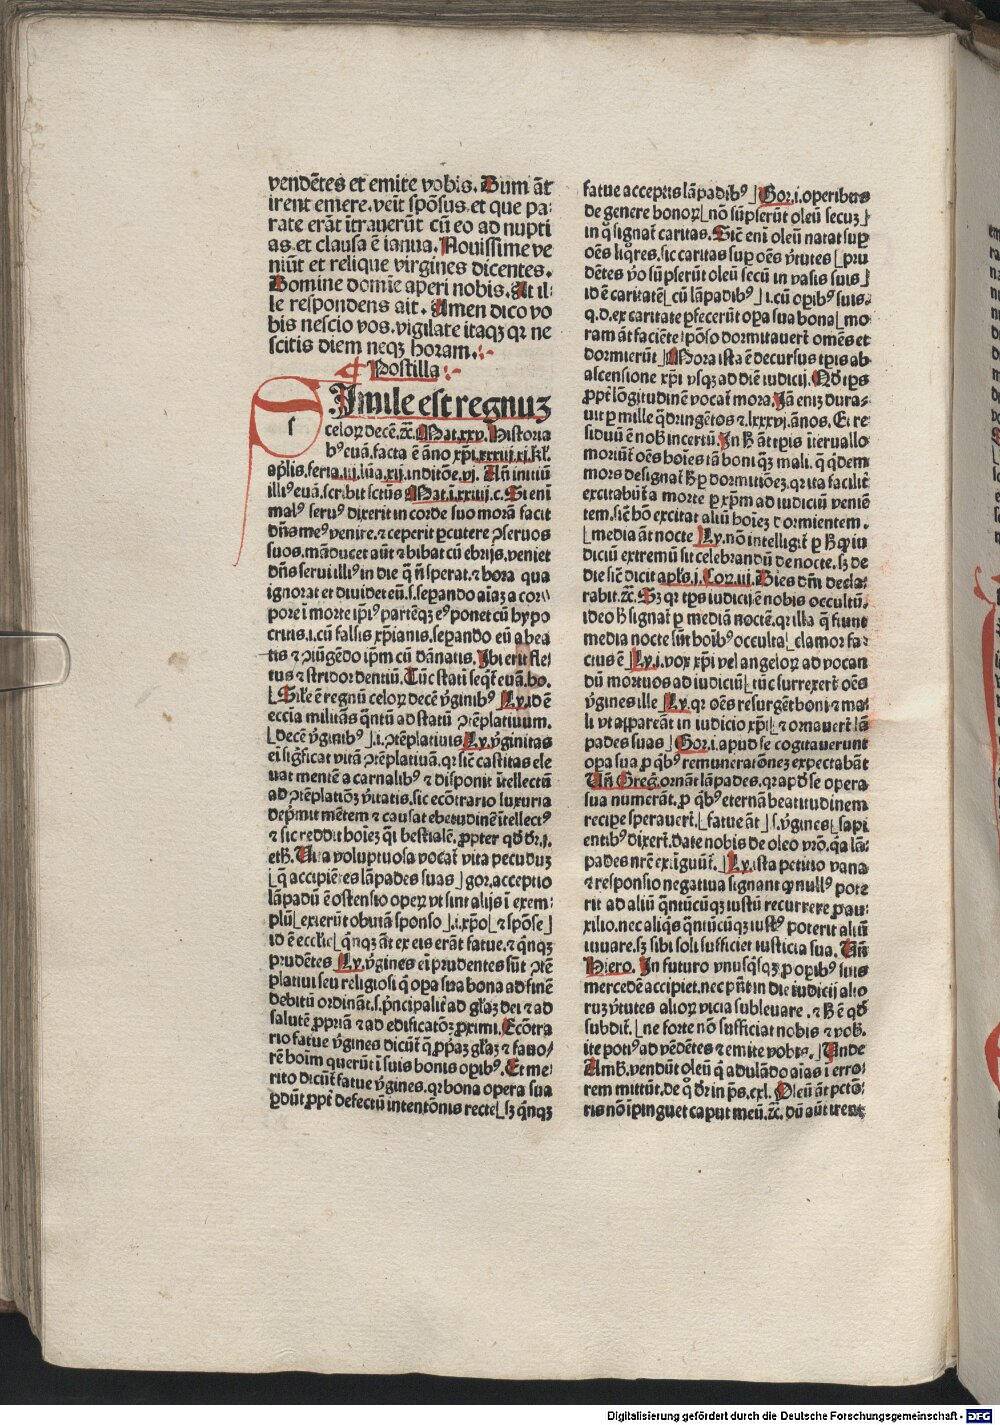 vendētes et emite vobis. Dum āt
irent emere. veīt spōsus. et que pa⸗
rate erāt ītrauerūt cū eo ad nupti
as. et clausa ē ianua. Nouissime ve
niūt et relique virgines dicentes.
Domine domīe aperi nobis. At il⸗
le respondens ait. Amen dico vo
bis nescio vos. vigilate itaqꝫ qꝛ ne
scitis diem neqꝫ horam.
¶ Postilla
s
Imile est regnuꝫ
celoꝝ decē. ⁊c̄. Mat. xxv. Historia
hꝰ euā. facta ē āno xp̄i. xxxiij. xj. kl̄.
ap̄lis. feria. iij. lūa. xij. inditōe. vj. Añ initiū
illiꝰ euā. scribit sctūs Mat. i. xxiiij. c. Si eni
malꝰ seruꝰ dixerit in corde suo morā facit
dn̄s meꝰ venire. ⁊ ceperit ꝑcutere ꝯseruos
suos. māducet aūt ⁊ bibat cū ebrijs. veniet
dn̄s serui illiꝰ in die q̄ n̄ sperat. ⁊ hora qua
ignorat et diuidet eū. s. sepando aīaꝫ a cor
pore ī morte ip̄iꝰ partēqꝫ eꝰ ponet cū hypo
critis. i. cū falsis xp̄ianis. sepando eū a bea
tis ⁊ ꝯiūgēdo ip̄m cū dānatis. Ibi erit fle⸗
tus ⁊ stridor dentiū. Tūc statī seq̄t̄ euā. ho.
⌊Sil̄e ē regnū celoꝝ decē v̄ginibꝰ⌋ Ly. id ē
eccīa militās q̄ntū ad statū ꝯtēplatiuum.
⌊decē v̄ginibꝰ⌋. i. ꝯtēplatiuis Ly. v̄ginitas
ei sig̃ficat vitā ꝯtēplatiuā. qꝛ sic̄ castitas ele
uat mentē a carnalibꝰ ⁊ disponit ītellectū
ad ꝯtēplatiōꝫ v̄itatis. sic ecōtrario luxuria
dep̄mit mētem ⁊ causat ebetudinē ītellectꝰ
⁊ sic reddit hoīeꝫ q̄si bestialē. ꝓpter qd̄ dr̄. j.
eth. Vita voluptuosa vocat̄ vita pecuduꝫ
⌊q̄ accipiētes lāpades suas⌋ gor. acceptio
lāpadū ē ostensio opeꝝ vt sint alijs ī exem⸗
plū⌊exierūt obuiā sponso⌋. i. xp̄o⌊⁊ spōse⌋
id ē eccl̄ie⌊q̄nqꝫ āt ex eis erāt fatue. ⁊ q̄nqꝫ
prudētes Ly. v̄gines ei prudentes sūt ꝯtē
platiui seu religiosi q̄ opa sua bona ad finē
debitū ordināt. s. p̄ncipalit̄ ad gl̄aꝫ dei ⁊ ad
salutē ꝓpriā ⁊ ad edificatōꝫ ꝓximi. Ecōtra
rio fatue v̄gines dicūt̄ q̄ ꝓp̄aꝫ gl̄aꝫ ⁊ fauo⸗
rē hoīm querūt ī suis bonis opibꝰ. Et me⸗
rito dicūt̄ fatue v̄gines. qꝛ bona opera sua
ꝑdūt ꝓpt̄ defectū intentōnis recte⌊sꝫ q̄nqꝫ
fatue acceptis lāpadibꝰ⌋ Gor. i. operibus
de genere bonoꝝ⌊nō sūpserūt oleū secuꝫ⌋
in q̊ signat̄ caritas. Sic̄ eni oleū natat suꝑ
oēs liq̄res. sic caritas suꝑ oēs v̄tutes⌊pru
dētes v̄o sūpserūt oleū secū in vasis suis⌋
id ē caritatē⌊cū lāpadibꝰ⌋. i. cū opibꝰ suis.
q. d. ex caritate ꝑfecerūt opa sua bona⌊mo
ram āt faciēte spōso dormitauerūt omēs et
dormierūt⌋ Mora ista ē decursus tp̄is ab
ascensione xp̄i vsqꝫ ad diē iudicij. Qd̄ tp̄s
ꝓpt̄ lōgitudinē vocat̄ mora. Iā eniꝫ dura⸗
uit ꝑ mille q̄dringētos ⁊ lxxxvj. ānos. Et re
siduū ē nob̄ incertū. In h̄ āt tp̄is īteruallo
moriūt̄ oēs hoīes tā boni q̄ꝫ mali. q̄ q̄dem
mors designat̄ h̄ ꝑ dormitiōeꝫ. qꝛ ita facilit̄
excitabūt̄ a morte ꝑ xp̄m ad iudiciū veniē
tem. sic̄ hō excitat aliū hoīeꝫ dormientem.
⌊media āt nocte⌋ Ly. nō intelligit̄ ꝑ h̄ qꝙ iu
diciū extremū sit celebrandū de nocte. sꝫ de
die sic̄ dicit apl̄s. j. Cor. iij. Dies dn̄i decla⸗
rabit. ⁊c̄. Sꝫ qꝛ tp̄s iudicij ē nobis occultū.
ideo h̄ signat̄ ꝑ mediā noctē. qꝛ illa q̄ fiunt
media nocte sūt hoībꝰ occulta⌊clamor fa⸗
ctus ē⌋ Ly. i. vox xp̄i vel angeloꝝ ad vocan
dū mortuos ad iudiciū⌊tūc surrexerūt oēs
v̄gines ille⌋ Ly. qꝛ oēs resurgēt boni ⁊ ma⸗
li vt appareāt in iudicio xp̄i⌊⁊ ornauerūt lā
pades suas⌋ Gor. i. apud se cogitauerunt
opa sua ꝓ q̄bꝰ remuneratōneꝫ expectabāt
Vn̄ Greg̃. ornāt lāpades. qꝛ apd̄ se opera
sua numerāt. ꝓ q̄bꝰ eternā beatitudinem
recipe sperauerūt.⌊fatue āt⌋ s. v̄gines⌊sapi
entibꝰ dixerūt. date nobis de oleo vr̄o. q̄a lā⸗
pades nr̄e extīguūt̄.⌋ Ly. ista petitio vana
⁊ responsio negatiua signant qꝙ nullꝰ pote
rit ad aliū q̄ntūcūqꝫ iustū recurrere ꝓ au⸗
xilio. nec aliq̄s q̄ntūcūqꝫ iustꝰ poterit aliū
iuuare. sꝫ sibi soli sufficiet iusticia sua. Vn̄
Hiero. In futuro vnusq̄sqꝫ ꝓ opibꝰ suis
mercedē accipiet. nec pn̄t in die iudicij alio
ruꝫ v̄tutes alioꝝ vicia subleuare. ⁊ h̄ ē qd̄
subdit̄.⌊ne forte nō sufficiat nobis ⁊ vob̄.
ite potiꝰ ad vēdētes ⁊ emite vobis.⌋ Vnde
Amb̄. vendūt oleū q̄ adulādo aīas ī erro⸗
rem mittūt. de q̊ dr̄ in p̄s. cxl. Oleū āt pctō⸗
ris nō īpinguet caput meū. ⁊c̄. dū aūt irent
Digitalisierung gefördert durch die Deutsche Forschungsgemeinschaft - DFG